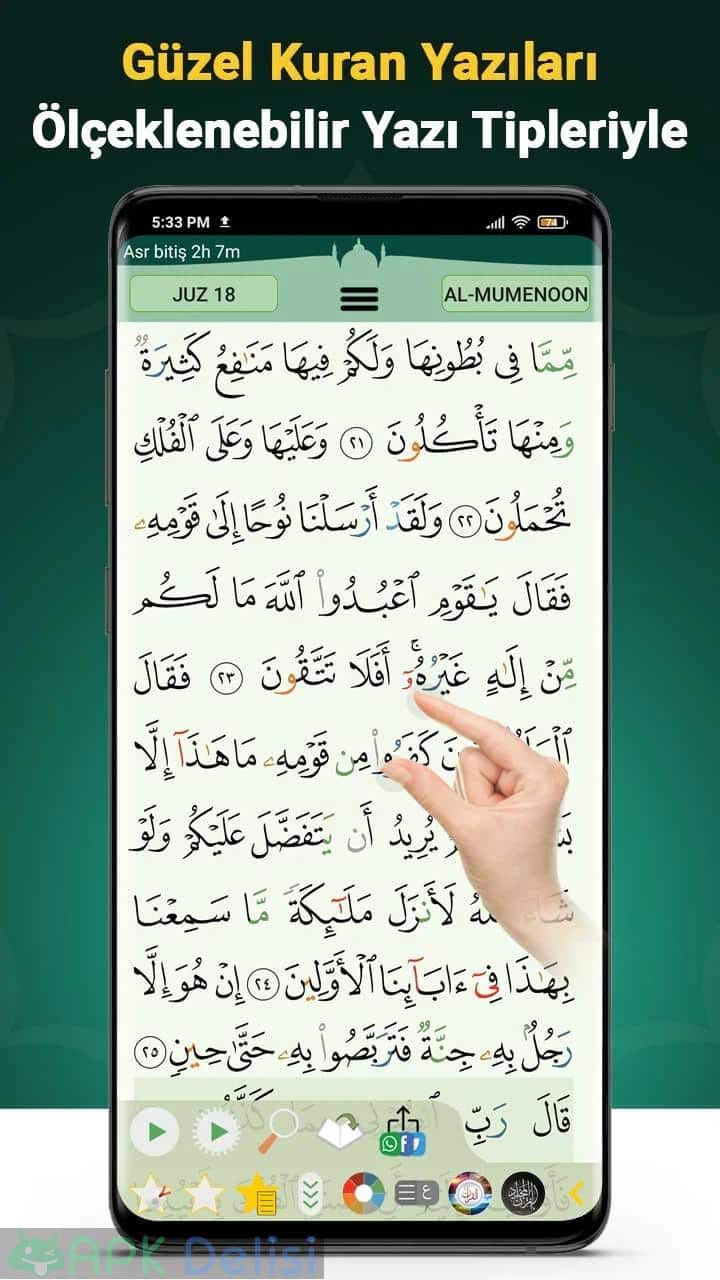 Güzel Kuran Yazıları
Ölçeklenebilir Yazı Tipleriyle
5:33 PM
74
Asr bitiş 2h 7m
JUZ 18
AL-MUMENOON
مِّمَّا فِي بُطُونِهَا وَلَكُمْ فِيهَا مَنَٰفِعُ كَثِيرَةٌ
وَمِنْهَا تَأْكُلُونَ ٢١ وَعَلَيْهَا وَعَلَى ٱلْفُلْكِ
تُحْمَلُونَ ٢٢ وَلَقَدْ أَرْسَلْنَا نُوحًا إِلَىٰ قَوْمِهِۦ
فَقَالَ يَٰقَوْمِ ٱعْبُدُوا۟ ٱللَّهَ مَا لَكُم
مِّنْ إِلَٰهٍ غَيْرُهُۥٓ ۚ أَفَلَا تَتَّقُونَ ٢٣ فَقَالَ
كَفَرُوا۟ مِن قَوْمِهِۦ مَا هَٰذَآ إِلَّا
يُرِيدُ أَن يَتَفَضَّلَ عَلَيْكُمْ وَلَوْ
لَأَنزَلَ مَلَٰٓئِكَةً مَّا سَمِعْنَا
بِهَٰذَا فِىٓ ءَابَآئِنَا ٱلْأَوَّلِينَ ٢٤ إِنْ هُوَ إِلَّا
رَجُلٌۢ بِهِۦ جِنَّةٌ فَتَرَبَّصُوا۟ بِهِۦ حَتَّىٰ حِينٍ ٢٥
قَالَ رَبِّ
APK Delisi